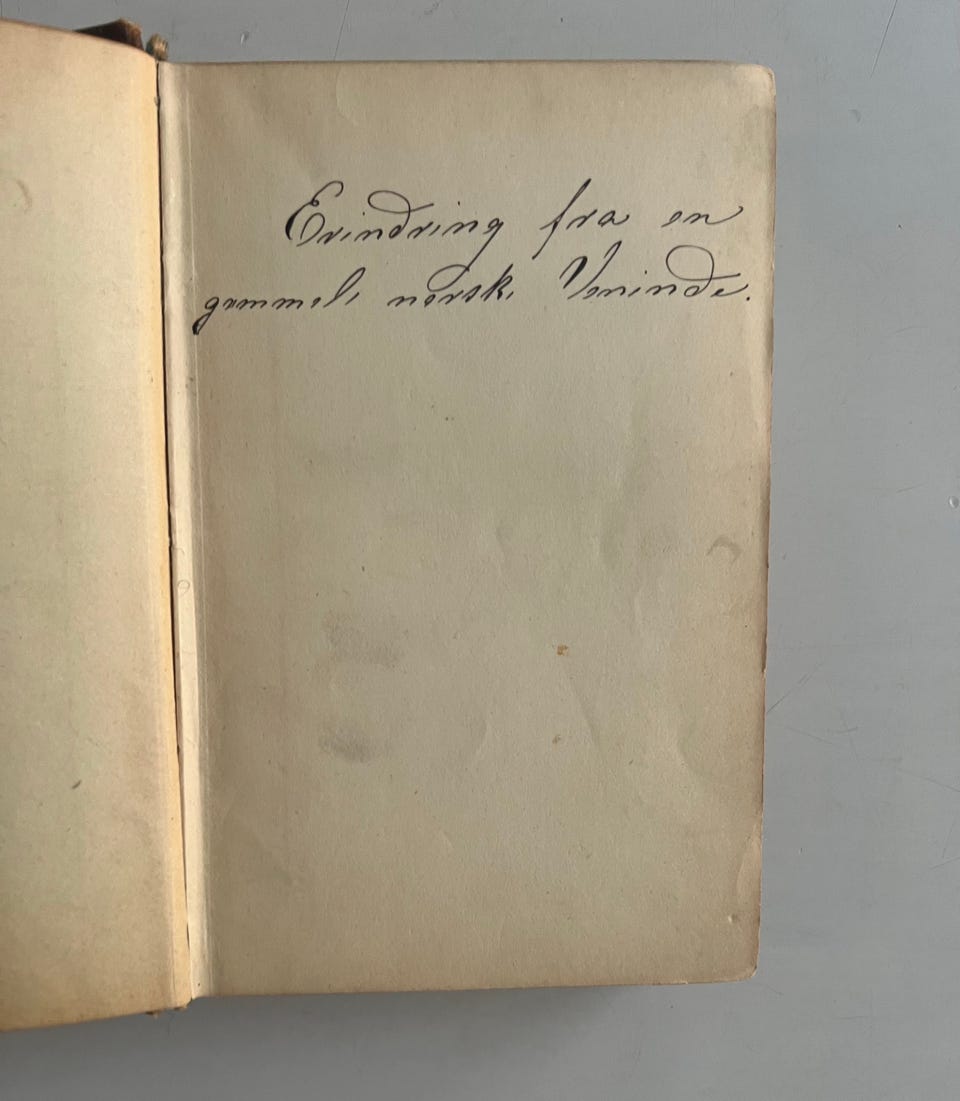 Erindring fra en
gammel norsk Veninde.